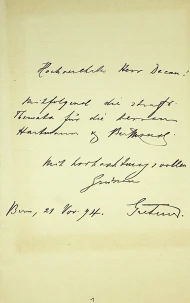 Hochverehrter Herr Decan!
Mitfolgend die straf
Themata für die Herren
Hartmann &
Mit hochachtungsvollen
Grüssen
Bern, 21 Nov 94.